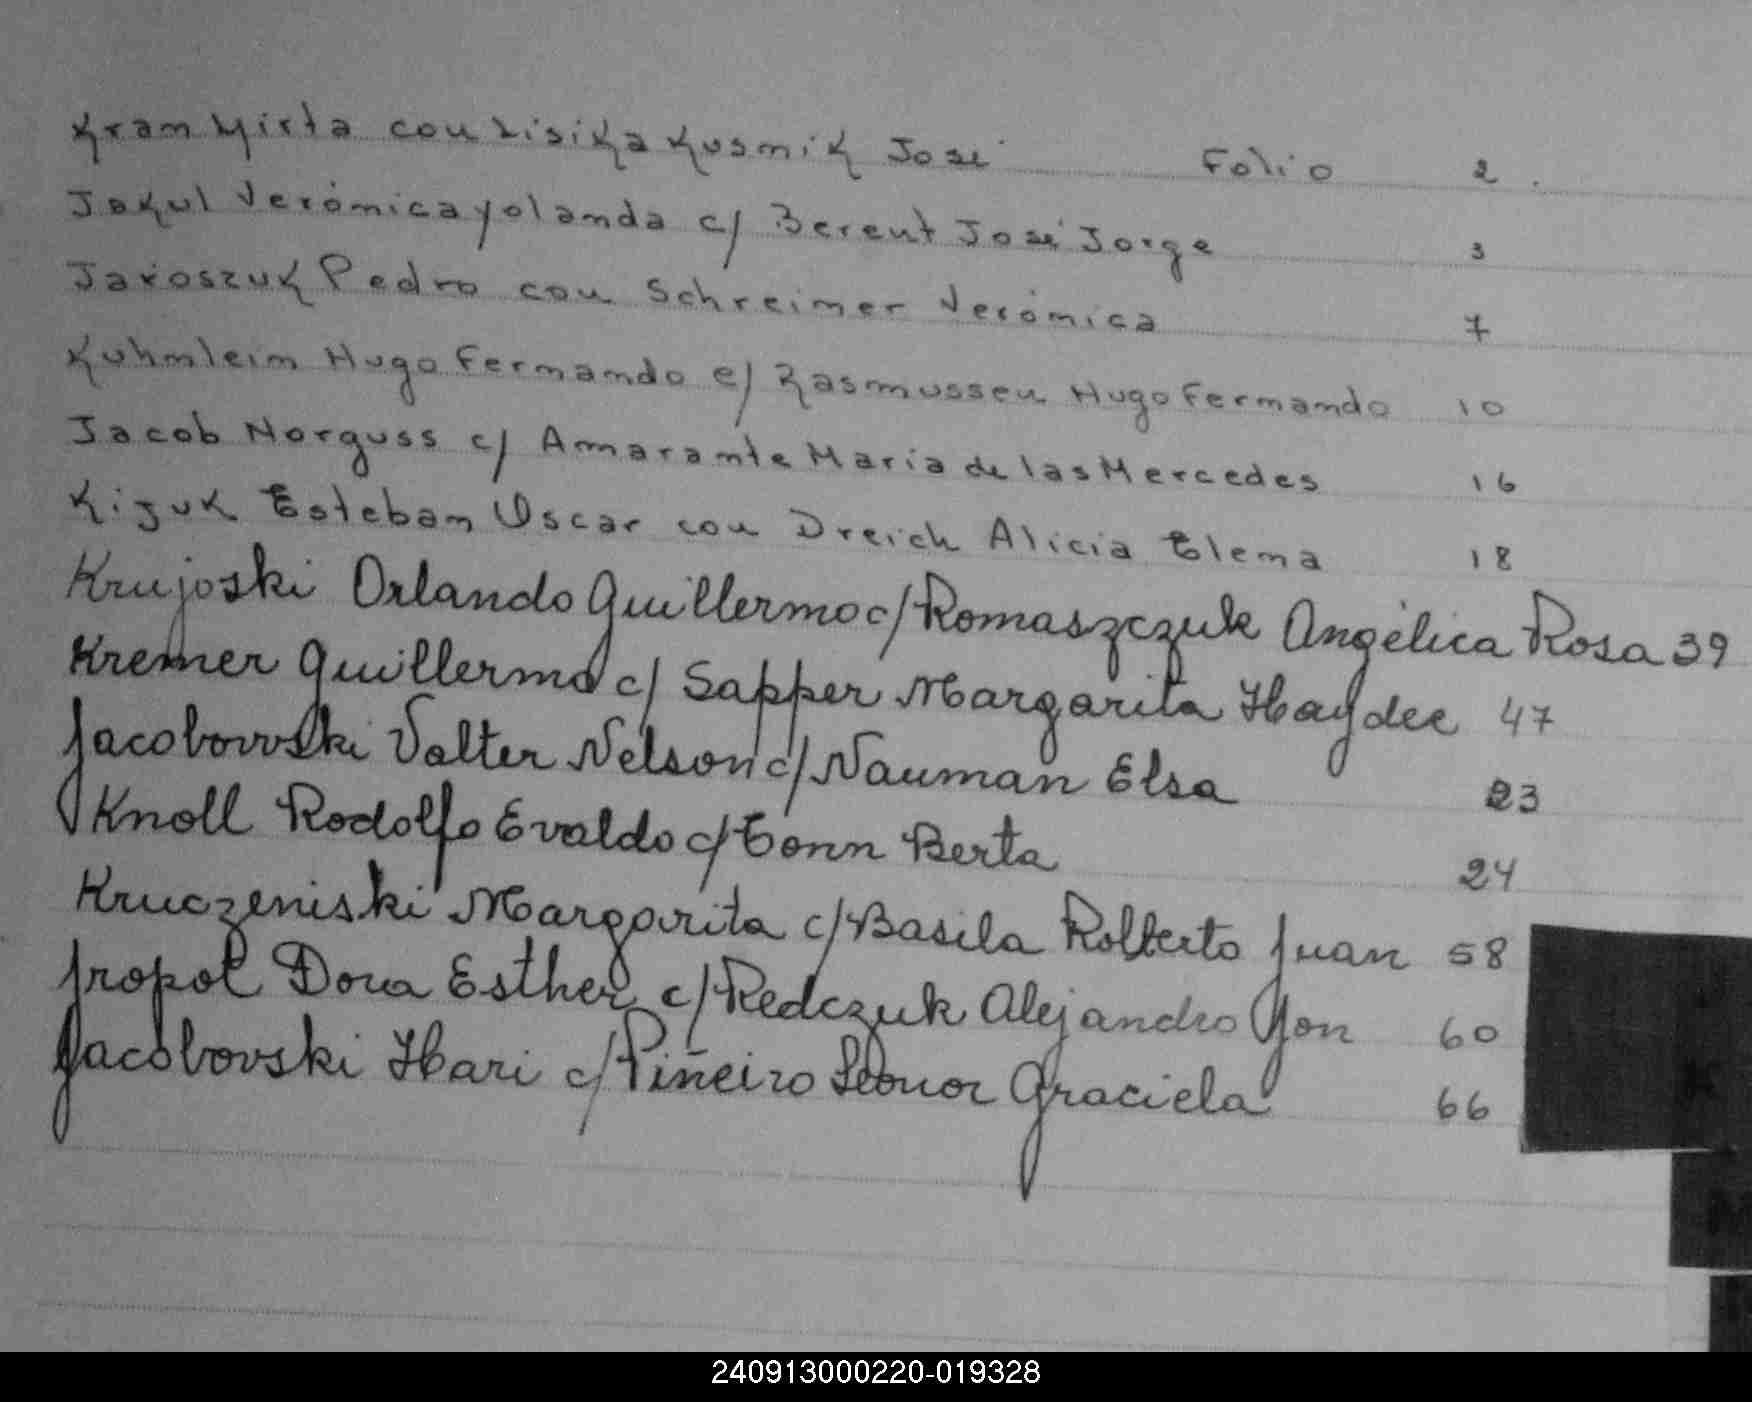 Kram Mirta con Lisika Kusmik José Folio 2.
Jakul Verónica Yolanda c/ Berent José Jorge 3
Jaroszuk Pedro con Schreimer Verónica 7
Kuhmleim Hugo Fernando c/ Rasmussen Hugo Fernando 10
Jacob Norguss c/ Amarante Maria de las Mercedes 16
Kijuk Esteban Oscar con Dreich Alicia Elena 18
Krujoski Orlando Guillermo c/ Romaszczuk Angélica Rosa 39
Kremer Guillermo c/ Sapper Margarita Haydee 47
Jacobovvski Valter Nelson c/ Nauman Elsa 23
Knoll Rodolfo Evaldo c/ Tonn Berta 24
Kruczeniski Margarita c/ Basila Rolberto Juan 58
Jropol Dora Esther c/ Redczuk Alejandro Jon 60
Jacobovski Hari c/ Piñeiro Leonor Graciela 66
K
M
240913000220-019328